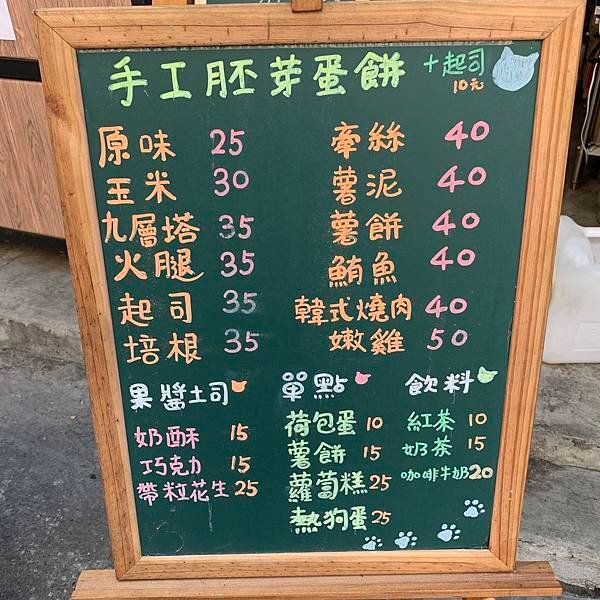 手工胚芽蛋餅 +起司
10元
原味 25
玉米 30
九層塔 35
火腿 35
起司 35
培根 35
牽絲 40
薯泥 40
薯餅 40
鮪魚 40
韓式燒肉 40
嫩雞 50
果醬土司
奶酥 15
巧克力 15
帶粒花生 25
單點
荷包蛋 10
薯餅 15
蘿蔔糕 25
熱狗蛋 25
飲料
紅茶 10
奶茶 15
咖啡牛奶 20